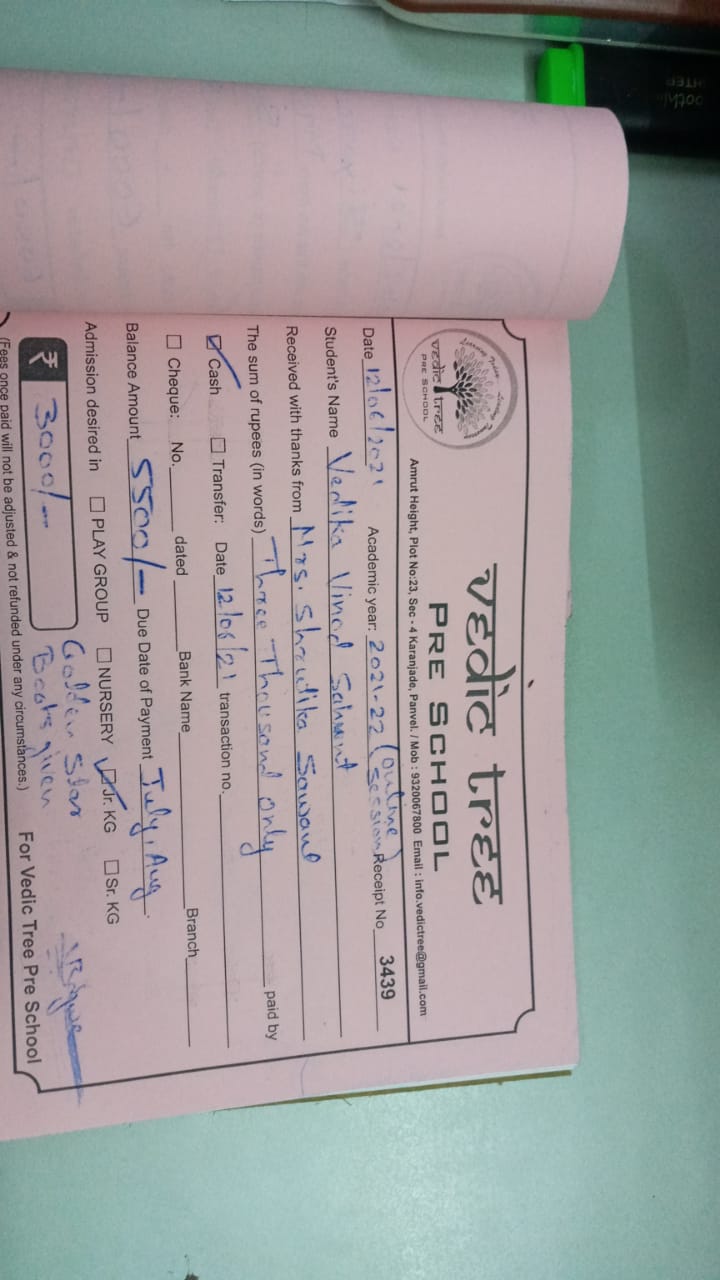 vedic tree
PRE SCHOOL
vedic tree
PRE SCHOOL
Amrut Height, Plot No:23, Sec - 4 Karanjade, Panvel. / Mob : 9320067800 Email : info.vedictree@gmail.com
Date 12/06/2021 Academic year: 2021-22 (online session) Receipt No 3439
Student's Name Vedika Vinod Sahant
Received with thanks from Mrs. Shrutika Sawant
The sum of rupees (in words) Three Thousand Only paid by
Cash Transfer: Date 12/06/21 transaction no.
Cheque: No. dated Bank Name Branch
Balance Amount 5500/- Due Date of Payment July, Aug.
Admission desired in PLAY GROUP NURSERY Jr. KG Sr. KG
₹ 3000/- Golden Star
Books given
For Vedic Tree Pre School
(Fees once paid will not be adjusted & not refunded under any circumstances.)